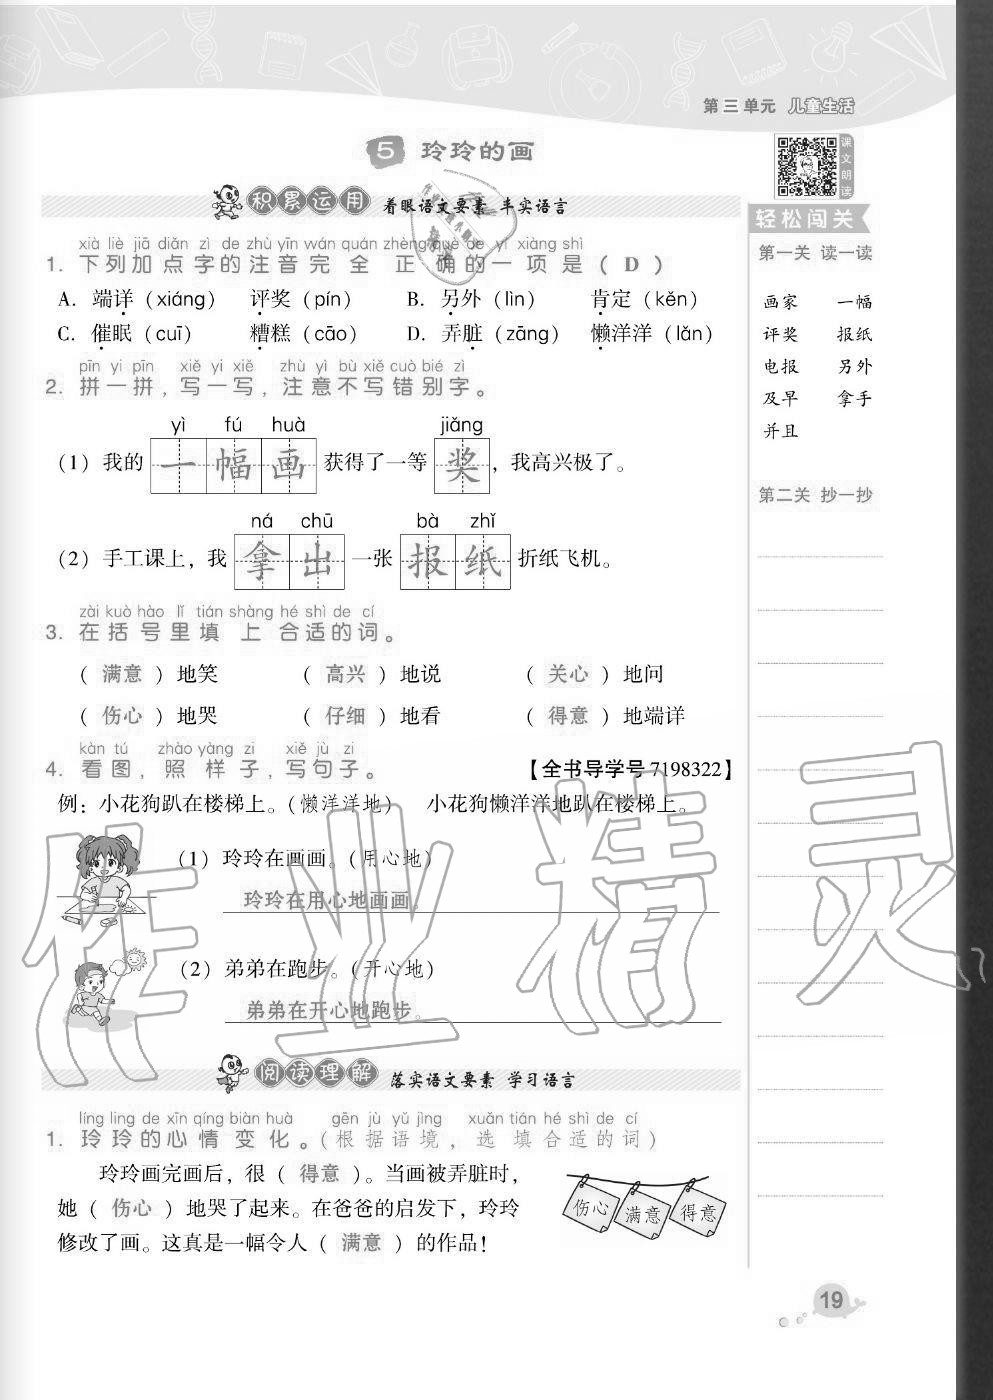 第三单元 儿童生活
5 玲玲的画
课文朗读
积累运用 着眼语文要素 丰实语言
xià liè jiā diǎn zì de zhù yīn wán quán zhèng què de yí xiàng shì
1. 下列加点字的注音完全正确的一项是( D )
A. 端详(xiáng) 评奖(pín) B. 另外(lìn) 肯定(kěn)
C. 催眠(cuī) 糟糕(cāo) D. 弄脏(zāng) 懒洋洋(lǎn)
pīn yi pīn xiě yi xiě zhù yì bù xiě cuò bié zì
2. 拼一拼,写一写,注意不写错别字。
yì fú huà jiǎng
(1) 我的 一幅画 获得了一等 奖 ,我高兴极了。
ná chū bà zhǐ
(2) 手工课上,我 拿出 一张 报纸 折纸飞机。
zài kuò hào lǐ tián shàng hé shì de cí
3. 在括号里填上合适的词。
( 满意 )地笑 ( 高兴 )地说 ( 关心 )地问
( 伤心 )地哭 ( 仔细 )地看 ( 得意 )地端详
kàn tú zhào yàng zi xiě jù zi
4. 看图,照样子,写句子。 【全书导学号7198322】
例:小花狗趴在楼梯上。(懒洋洋地) 小花狗懒洋洋地趴在楼梯上。
(1) 玲玲在画画。(用心地)
玲玲在用心地画画。
(2) 弟弟在跑步。(开心地)
弟弟在开心地跑步。
阅读理解 落实语文要素 学习语言
líng ling de xīn qíng biàn huà gēn jù yǔ jìng xuǎn tián hé shì de cí
1. 玲玲的心情变化。(根据语境,选填合适的词)
玲玲画完画后,很( 得意 )。当画被弄脏时,
她( 伤心 )地哭了起来。在爸爸的启发下,玲玲
修改了画。这真是一幅令人( 满意 )的作品!
伤心 满意 得意
轻松闯关
第一关 读一读
画家 一幅
评奖 报纸
电报 另外
及早 拿手
并且
第二关 抄一抄
19
作业精灵